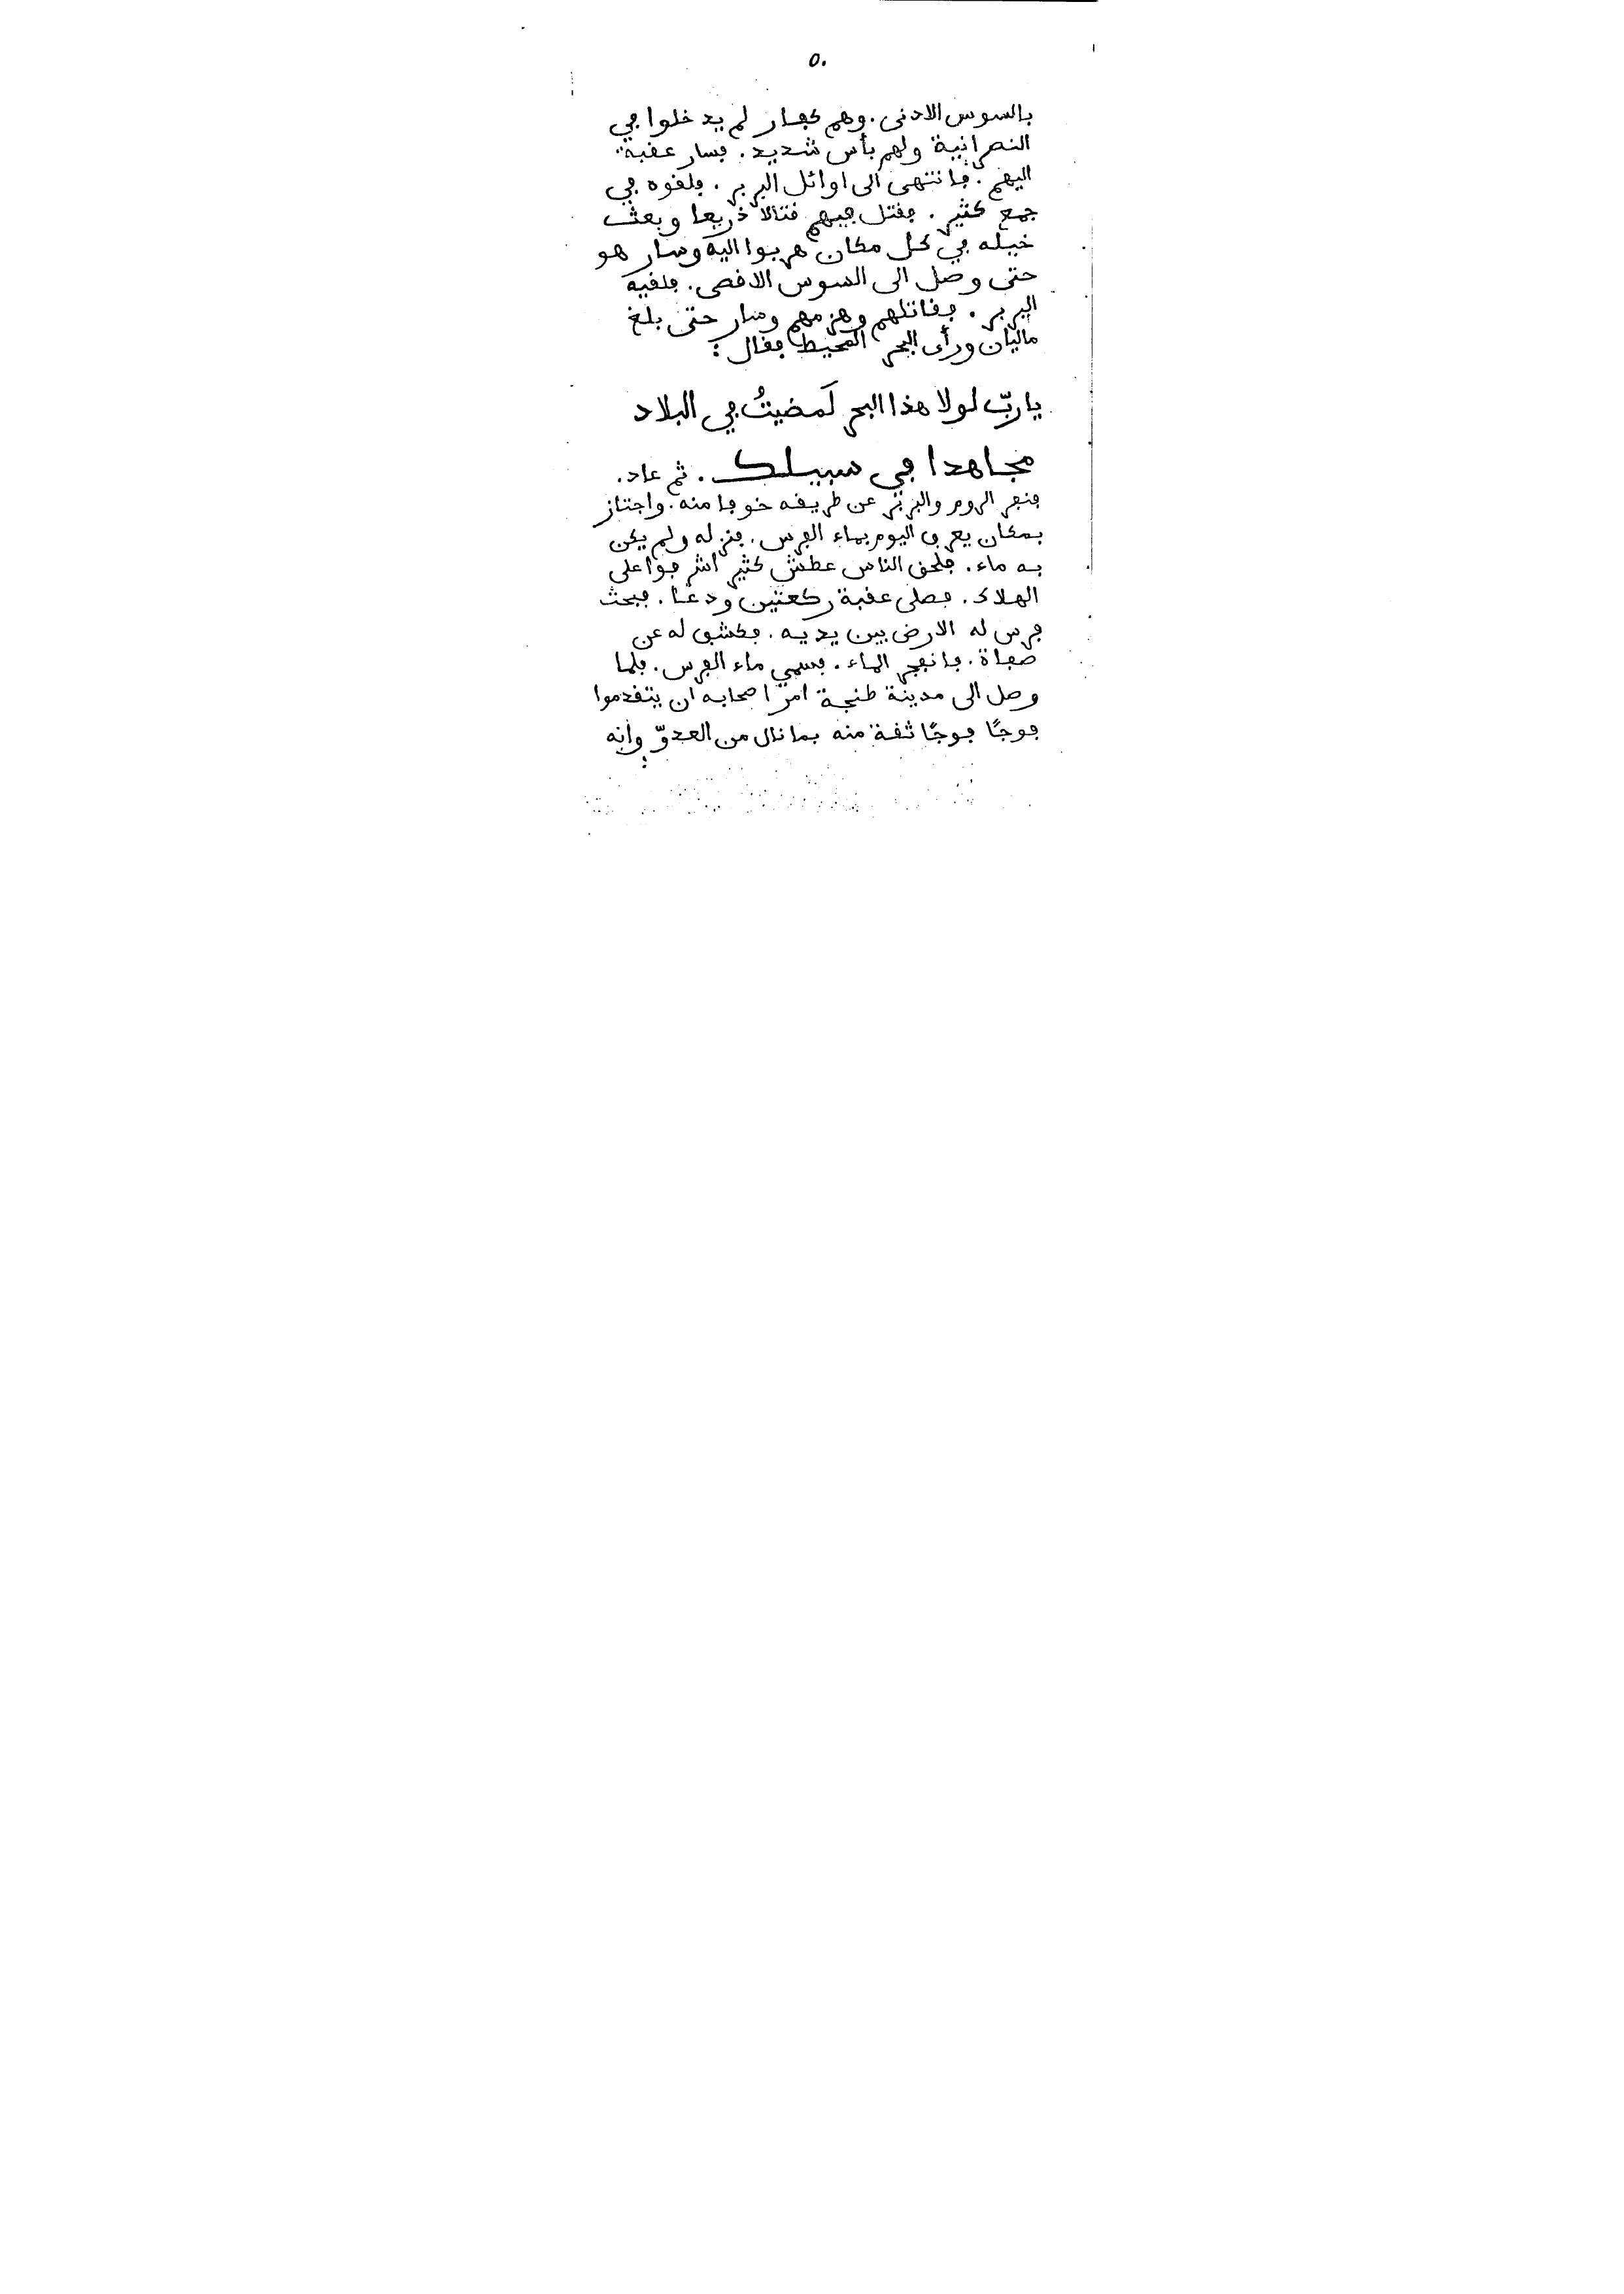 ٥٠
بالسوس الادنى. وهم كفار لم يدخلوا في
النصرانية ولهم بأس شديد. فسار عقبة
اليهم. فانتهى الى اوائل البربر. فلقوه في
جمع كثير. فقتل فيهم قتالا ذريعا وبعث
خيله في كل مكان هربوا اليه وسار هو
حتى وصل الى السوس الاقصى. فلقيه
البربر. فقاتلهم وهزمهم وسار حتى بلغ
ماليان ورأى البحر المحيط فقال:
يا ربّ لولا هذا البحر لَمضيتُ في البلاد
مجاهدا في سبيلك. ثم عاد.
فنفر الروم والبربر عن طريقه خوفا منه. واجتاز
بمكان يعرف اليوم بماء الفرس. فنزله ولم يكن
به ماء. فلحق الناس عطش كثير اشرفوا على
الهلاك. فصلى عقبة ركعتين ودعا. فبحث
فرس له الارض بين يديه. فكشف له عن
صفاة. فانفجر الماء. فسمي ماء الفرس. فلما
وصل الى مدينة طنجة امر اصحابه ان يتقدموا
فوجًا فوجًا ثقة منه بما نال من العدوّ وانه